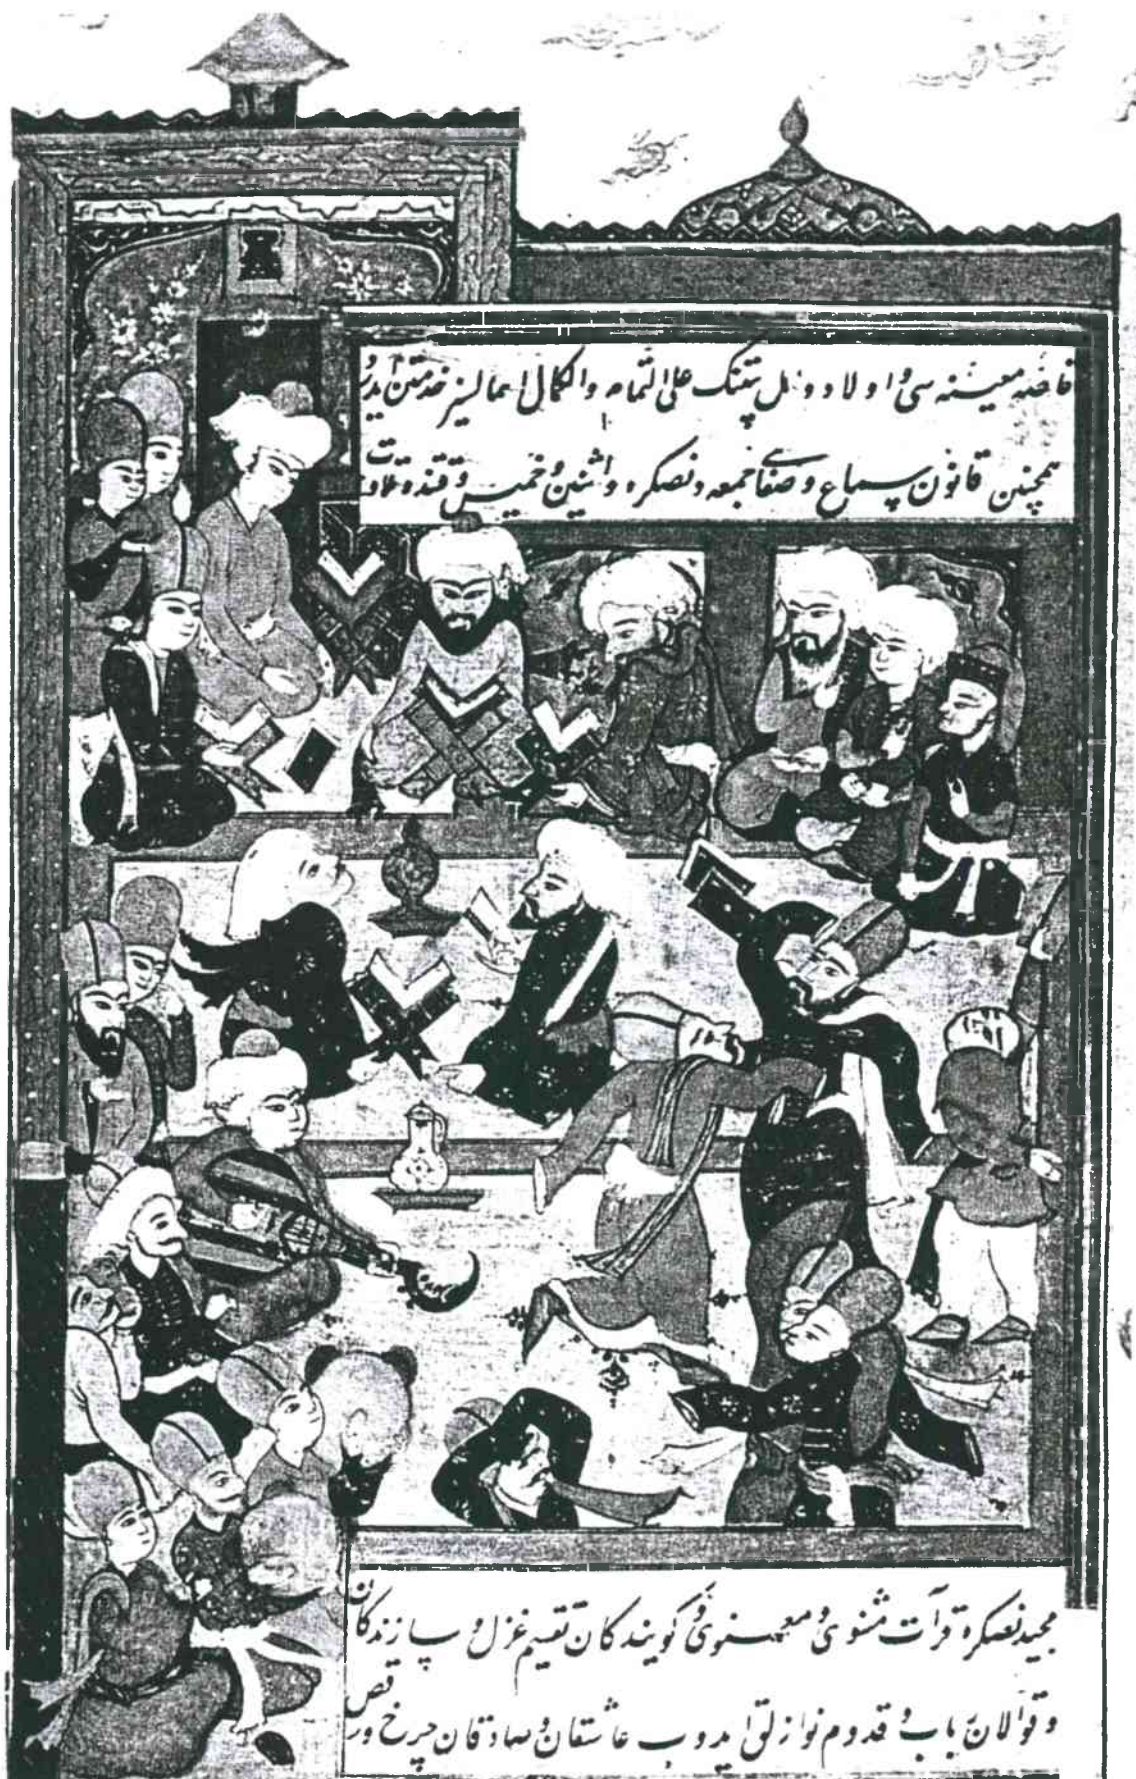 معینه سی و اولاد و علی التمام والکمال اهمالسز خدمتن ایدر
همچنین قانون سماع و صفای جمعه دنصکره و اثنین و خمیس وقتنده تلاوت
مجیدنصکره قرآت مثنوی و معنوی و کویندکان تقسیم غزل و سازندکان
و قوالان رباب و قدوم نوازلق ایدوب عاشقان و صادقان چرخ ورقص